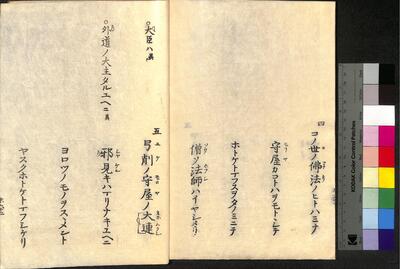 四
コノ世ノ佛法ノヒトハミナ
守屋カコトハヲモトシテ
ホトケトマフスヲタノミニテ
僧ソ法師ハイヤシメリ
五
弓削ノ守屋ノ大連
ユケ モリヤ
邪見キハマリナキユヘニ
シヤケン
ヨロツノモノヲスヽメント
ヤスクホトケトマフシケリ
大臣ハ異
外道ノ大主タルユヘニ異
KODAK Color Control Patches